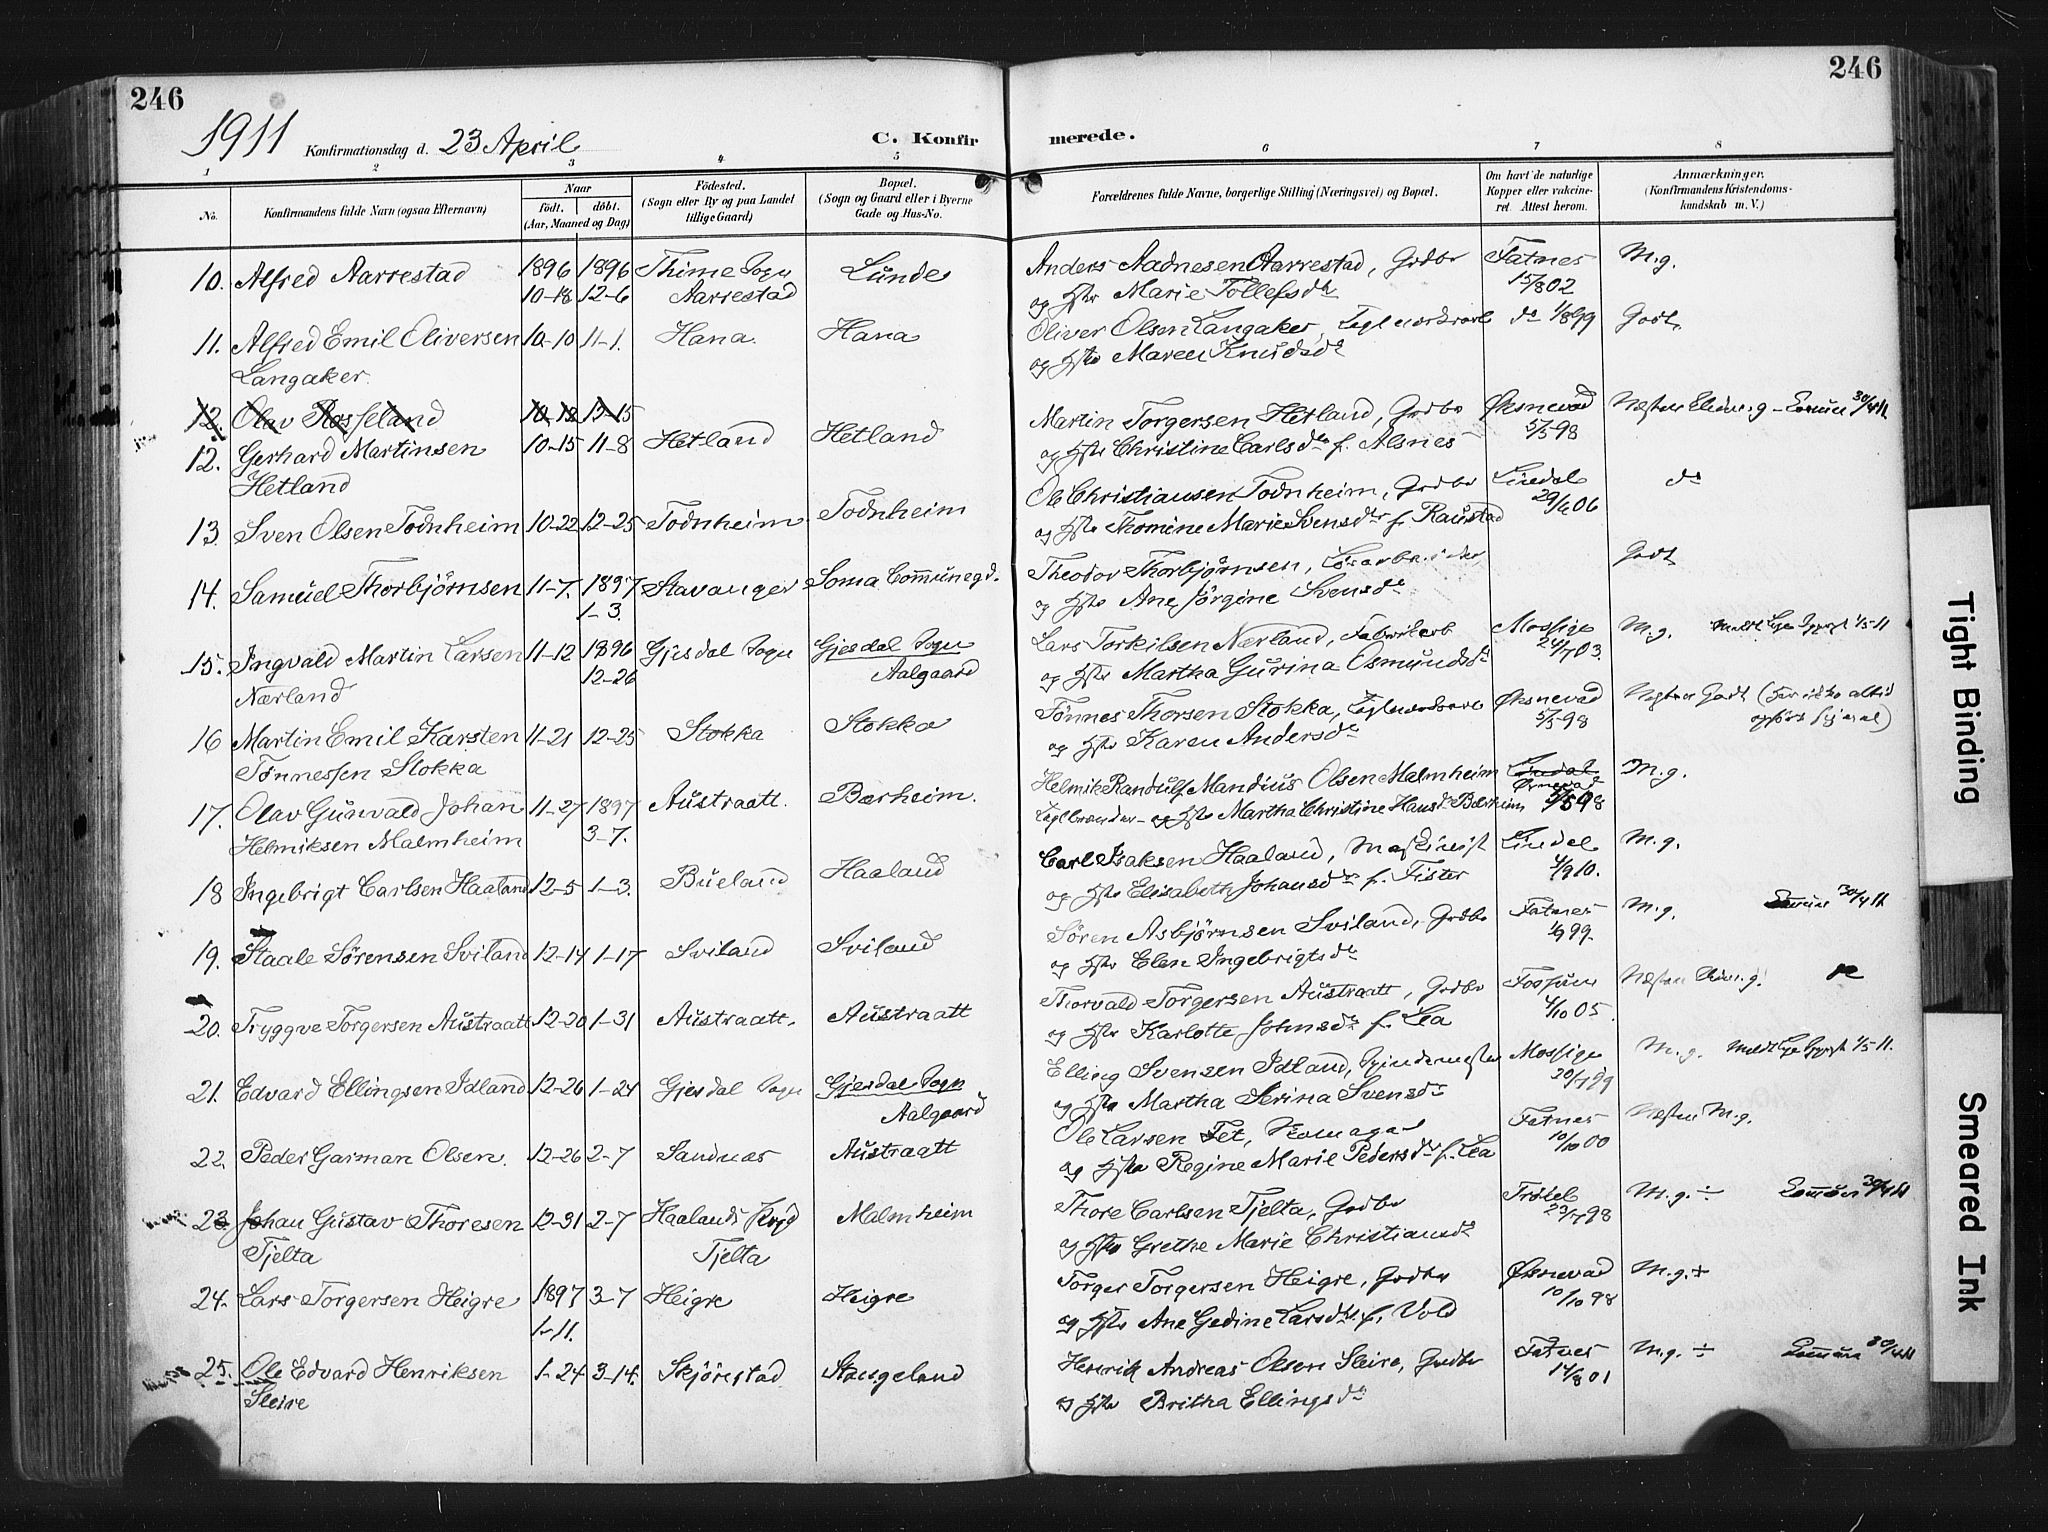 246
246
1911 Konfirmationsdag d. 23 April
C. Konfir
merede.
1 2 3 4 5 6 7 8
No.
Konfirmandens fulde Navn (ogsaa Efternavn)
Naar
født. døbt.
(Aar, Maaned og Dag)
Fødested.
(Sogn eller By og paa Landet
tillige Gaard)
Bopæl.
(Sogn og Gaard eller i Byerne
Gade og Hus-No.
Forældrenes fulde Navne, borgerlige Stilling (Næringsvei) og Bopæl.
Om havt de naturlige
Kopper eller vakcine-
ret. Attest herom.
Anmærkninger.
(Konfirmandens Kristendoms-
kundskab m. V.)
10. Alfred Aarrestad 1896 1896 Thime Sogn Lunde Anders Aadnesen Aarrestad, Grdbr Fatnes M.g.
10-18 12-6 Aarrestad og Hstr Marie Tollefsdtr 15/8 02
11. Alfred Emil Oliversen 10-10 11-1. Hana. Hana Oliver Olsen Langaker, do 1/8 99 Godt.
Langaker. og Hstr Maren Knudsdtr
12. Olav Rosseland 10-12 12-15
12. Gerhard Martinsen 10-15 11-8 Hetland Hetland Martin Torgersen Hetland, Grdbr Øksnevad Næsten 30/4 11
Hetland og Hstr Christine Carlsdtr f. Alsnes 5/5 98
13. Sven Olsen Todnheim 10-22 12-25 Todnheim Todnheim Ole Christiansen Todnheim, Grdbr Lindal do
og Hstr Thomine Marie Svensdtr f. Raustad 06
14. Samuel Thorbjørnsen 11-7. 1897 Stavanger Soma Communegd. Theodor Thorbjørnsen, Godt
1-3. og Hstr Ane Jørgine Svensdtr
15. Ingvald Martin Larsen 11-12 1896 Gjesdal Sogn Gjesdal Sogn Lars Torkilsen Nærland, Fabrikarb Mossige M.g. 1/5-11
Nærland 12-26 Aalgaard og Hstr Martha Gurina Osmundsdtr 24/7 03.
16 Martin Emil Karsten 11-21 12-25 Stokka Stokka Tønnes Thorsen Stokka, Øksnevad Godt
Tønnessen Stokka og Hstr Karen Andersdtr 5/5-98
17. Olav Gunvald Johan 11-27 1897 Austraatt. Bærheim. Helmik Randulf Mandius Olsen Malmheim Lindal M.g.
Helmiksen Malmheim 3-7. Teglbrænder og Hstr Martha Christine Hansdtr Bærheim 98
18 Ingebrigt Carlsen Haaland 12-5 1-3. Bueland Haaland Carl Isaksen Haaland, Maskinist Lindal M.g.
og Hstr Elisabeth Johansdtr f. Fister 4/9 10.
19. Staale Sørensen Sviland 12-14 1-17 Sviland Sviland Søren Asbjørnsen Sviland, Grdbr Fatnes M.g. 30/4 11
og Hstr Elen Ingebrigtsdtr 99.
20. Tryggve Torgersen Austraatt 12-20 1-31 Austraatt. Austraatt Thorvald Torgersen Austraatt, Grdbr Fossum Næsten
og Hstr Karlotte Johnsdtr f. Lea 4/10 05.
21. Edvard Ellingsen Idland 12-26 1-24 Gjesdal Sogn Gjesdal Sogn Elling Svensen Idland, Spindemester Mossige M.g. 1/5-11.
Aalgaard og Hstr Martha Serina Svensdtr 20/7 99
22. Peder Garman Olsen. 12-26 2-7 Sandnæs Austraatt Ole Larsen Fet, Skomager Fatnes Næsten M.g.
og Hstr Regine Marie Pedersdtr f. Lea 10/10 00
23. Johan Gustav Thoresen 12-31 2-7 Haalands Malmheim Thore Carlsen Tjelta, Grdbr M.g. ÷ 30/4 11
Tjelta Tjelta og Hstr Grethe Marie Christiansdtr 23/7 98
24. Lars Torgersen Heigre 1897 3-7 Heigre Heigre Torger Torgersen Heigre, Grdbr Øksnevad M.g.+
1-11. og Hstr Ane Gedine Larsdtr f. Vold 10/10 98
25. Ole Edvard Henriksen 1-24 3-14. Skjørestad Stangeland Henrik Andreas Olsen Sleire, Grdbr Fatnes M.g. ÷ 30/4 11
Sleire og Hstr Britha Ellingsdtr 14/8 01
Tight Binding
Smeared Ink